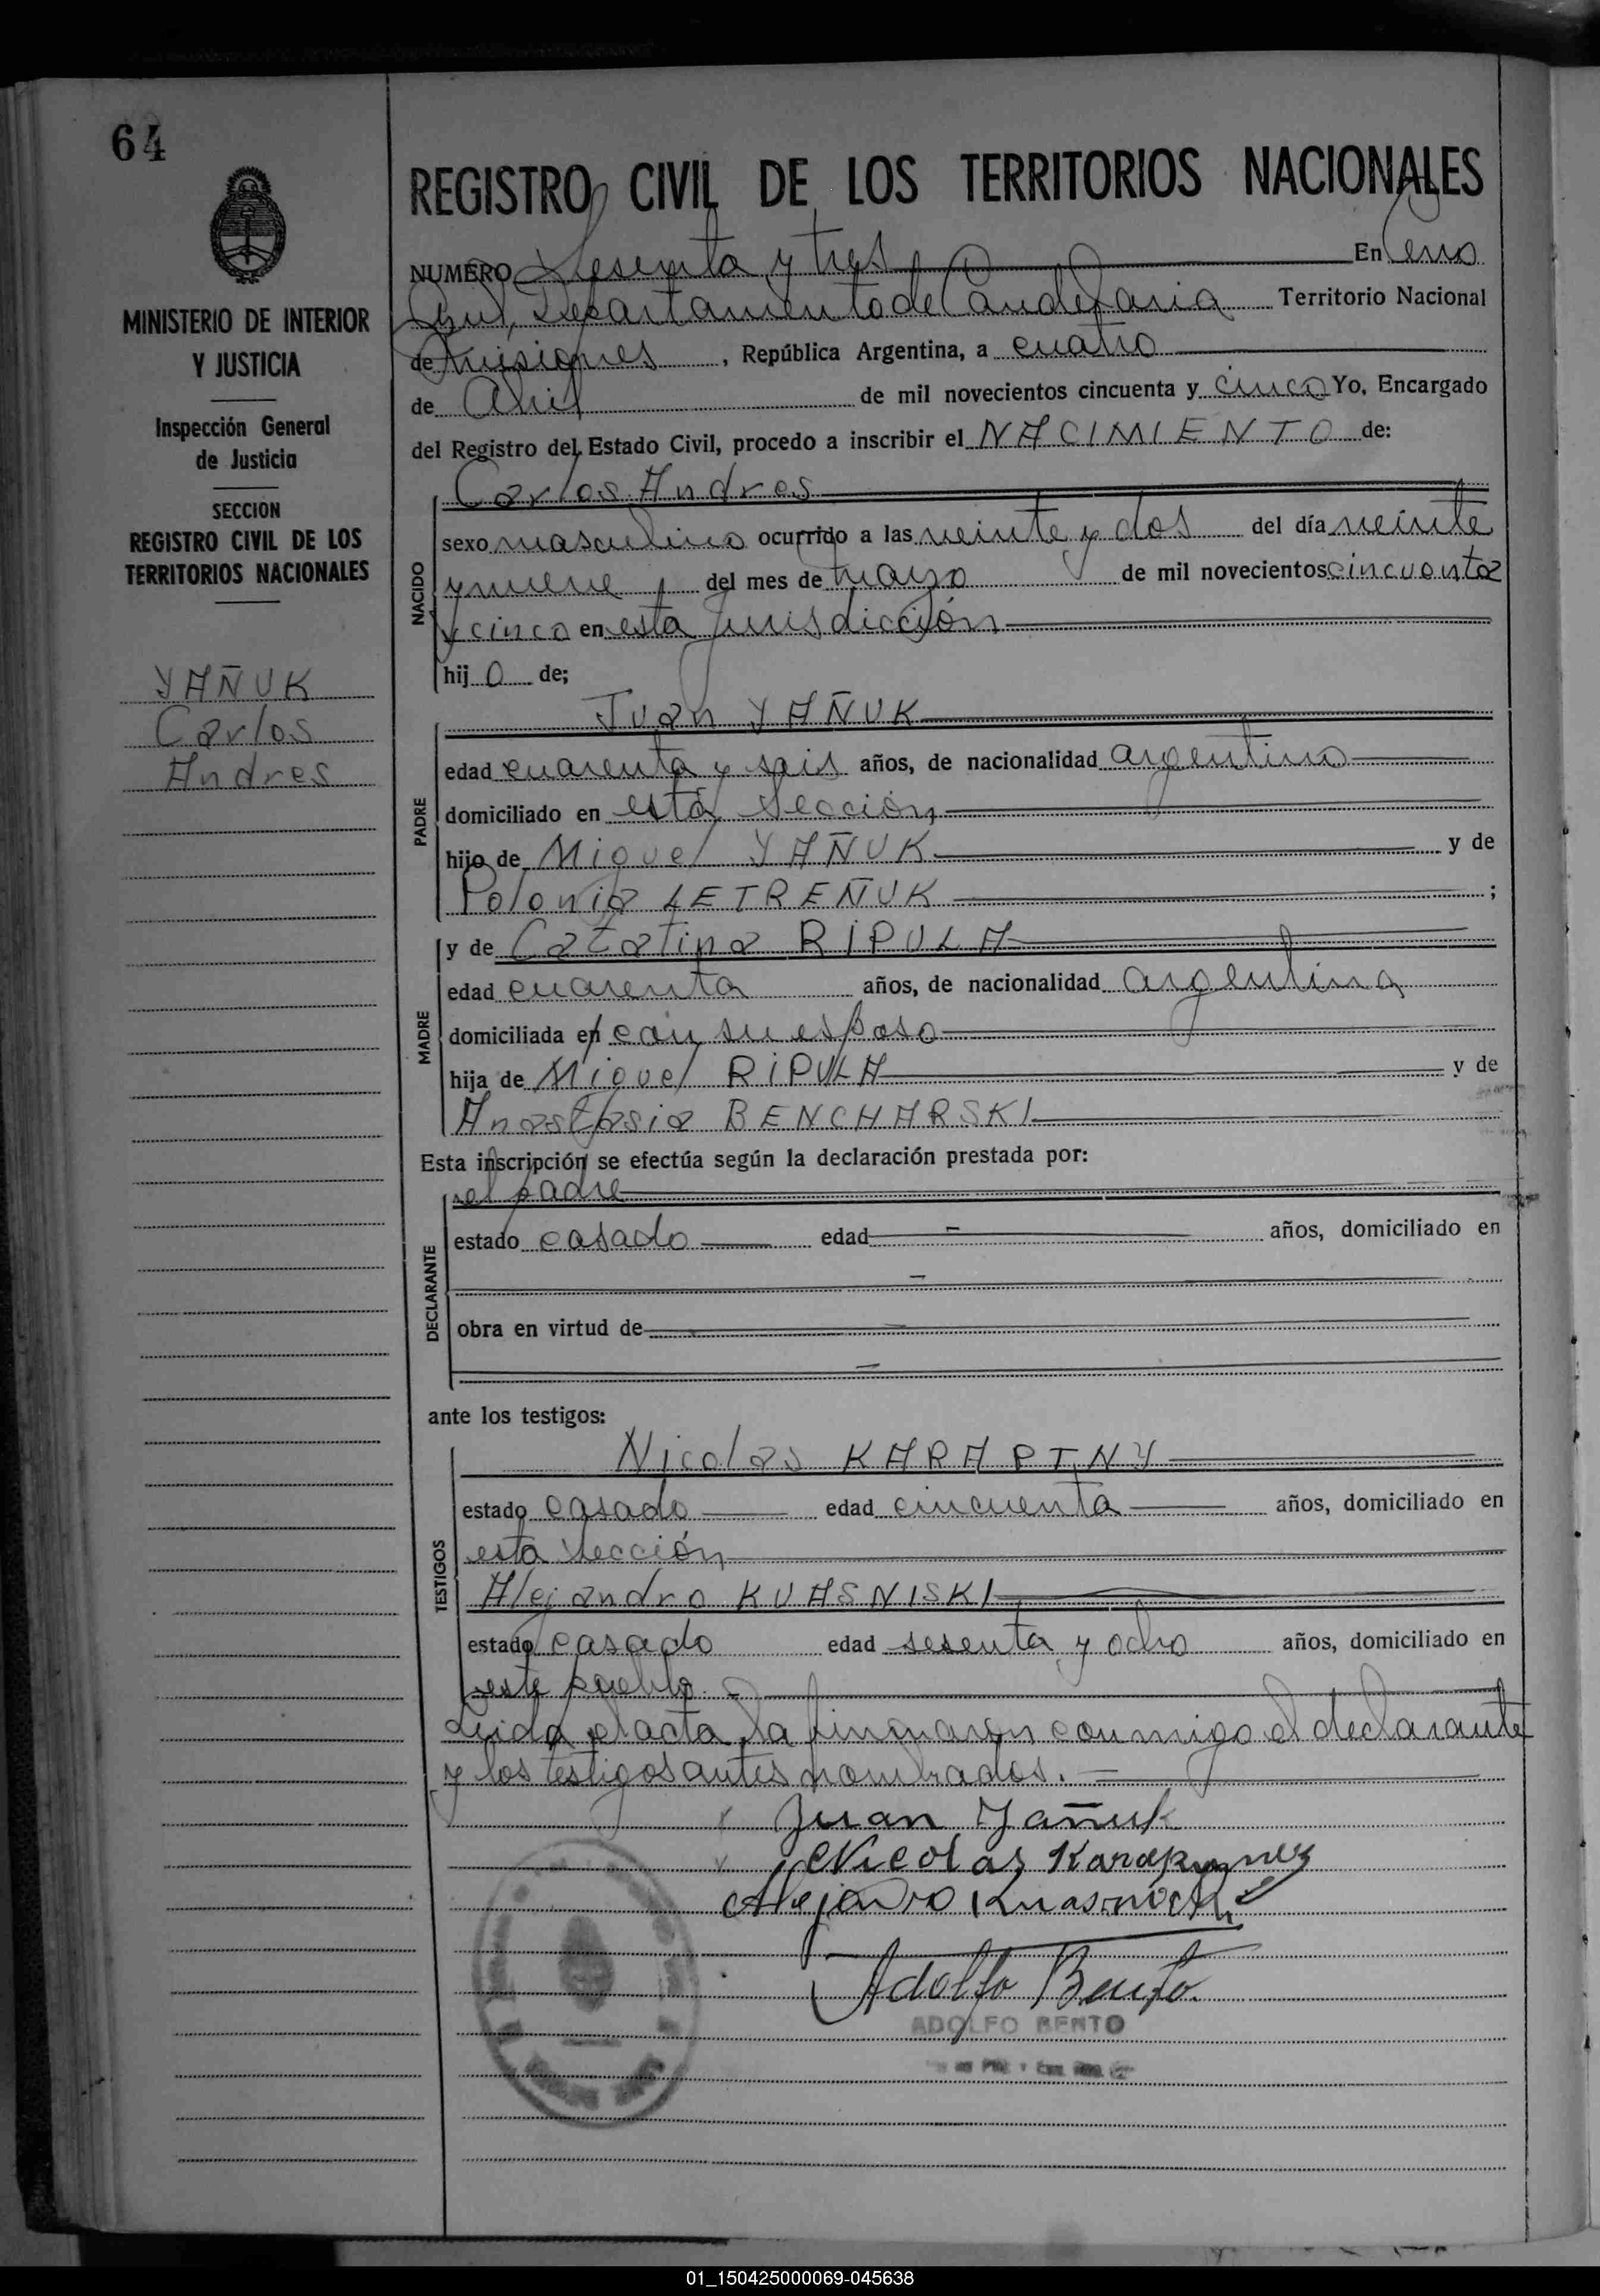 64
MINISTERIO DE INTERIOR
Y JUSTICIA
Inspección General
de Justicia
SECCION
REGISTRO CIVIL DE LOS
TERRITORIOS NACIONALES
YAÑUK
Carlos
Andres
REGISTRO CIVIL DE LOS TERRITORIOS NACIONALES
NUMERO Sesenta y tres En Cerro
Corá, Departamento de Candelaria Territorio Nacional
de Misiones, República Argentina, a cuatro
de Abril de mil novecientos cincuenta y cinco Yo, Encargado
del Registro del Estado Civil, procedo a inscribir el NACIMIENTO de:
Carlos Andres
NACIDO
sexo masculino ocurrido a las veinte y dos del día veinte
y nueve del mes de marzo de mil novecientos cincuenta
y cinco en esta jurisdicción
hijo de;
Juan YAÑUK
PADRE
edad cuarenta y seis años, de nacionalidad argentino
domiciliado en esta Sección
hijo de Miguel YAÑUK y de
Polonia LETREÑUK ;
MADRE
y de Catalina RIPULA
edad cuarenta años, de nacionalidad argentina
domiciliada en con su esposo
hija de Miguel RIPULA y de
Anastasia BENCHARSKI
Esta inscripción se efectúa según la declaración prestada por:
DECLARANTE
el padre
estado casado edad - años, domiciliado en
obra en virtud de
ante los testigos:
TESTIGOS
Nicolas KARAPTNY
estado casado edad cincuenta años, domiciliado en
esta Sección
Alejandro KUASNISKI
estado casado edad sesenta y ocho años, domiciliado en
este pueblo.
Leida el acta, la firmaron conmigo el declarante
y los testigos antes nombrados.
Juan Yañuk
Nicolas
Alejandro
Adolfo Bento.
ADOLFO BENTO
01_150425000069-045638